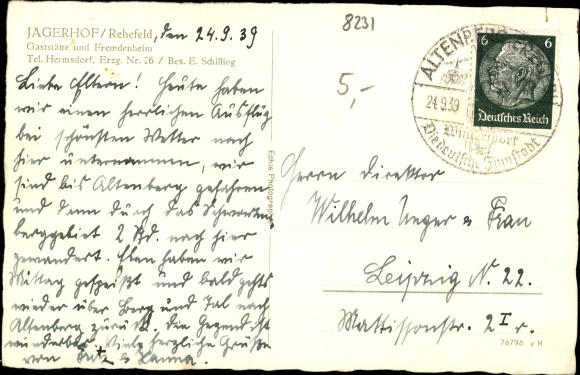 JÄGERHOF/Rehefeld, den 24.9.39
Gaststätte und Fremdenheim
Tel. Hermsdorf, Erzg. Nr. 26 / Bes. E. Schilling
Liebe Eltern! Heute haben
wir einen herrlichen Ausflug
bei schönsten Wetter nach
hier unternommen, wir
sind bis Altenberg gefahren
und dann durch das
berggebiet 2 Std. nach hier
gewandert. Eben haben wir
Mittag gespeißt und bald gehts
wieder über Berg und Tal nach
Altenberg zurück. Die Gegend ist
wunderbar. Viele herzliche Grüße
von Fritz & Hanna.
Echte Photographie
8231
5,-
ALTENBERG
24.9.39
6 6
Deutsches Reich
Wintersport
Die deutsche
Herrn Direktor
Wilhelm Unger & Frau
Leipzig N. 22.
2 I r.
76798